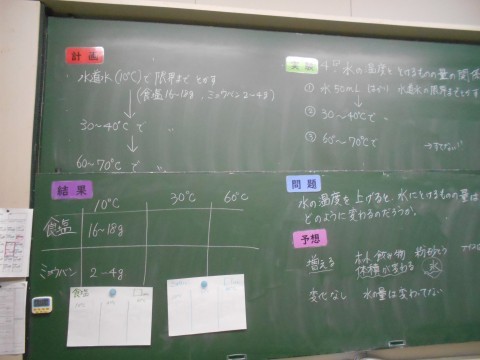 計画
水道水(10℃)で限界までとかす
(食塩16~18g、ミョウバン2~4g)
↓
30~40℃で 〃
↓
60~70℃で 〃
実験
水の温度ととけるものの量の関係
① 水50mLはかり 水道水の限界までとかす
② 30~40℃で 〃
③ 60~70℃で
結果
10℃ 30℃ 60℃
食塩 16~18g
ミョウバン 2~4g
食塩
問題
水の温度を上げると、水にとけるものの量は
どのように変わるのだろうか。
予想
増える
体積が変わる
変化なし 水の量は変わってない